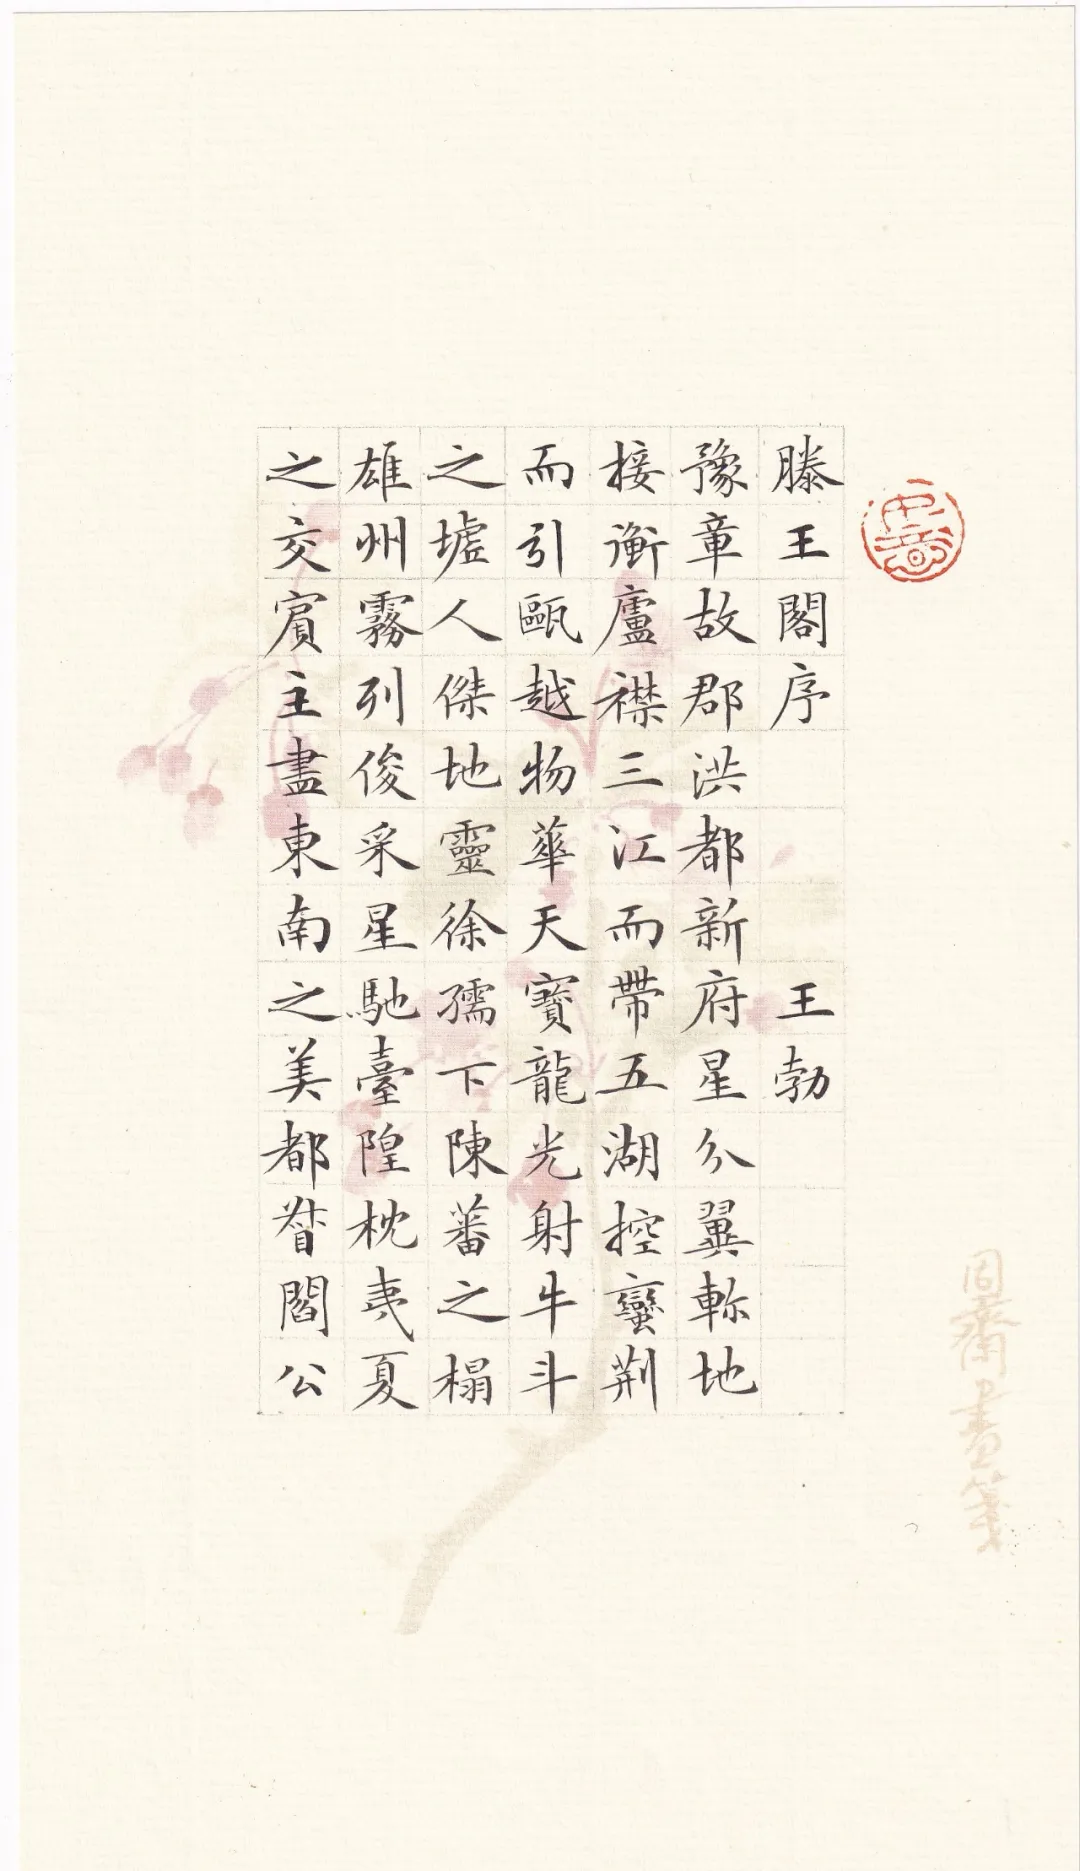 滕王閣序 王勃
豫章故郡洪都新府星分翼軫地
接衡廬襟三江而帶五湖控蠻荆
而引甌越物華天寶龍光射牛斗
之墟人傑地靈徐孺下陳蕃之榻
雄州霧列俊采星馳臺隍枕夷夏
之交賓主盡東南之美都督閻公
齋畫箋